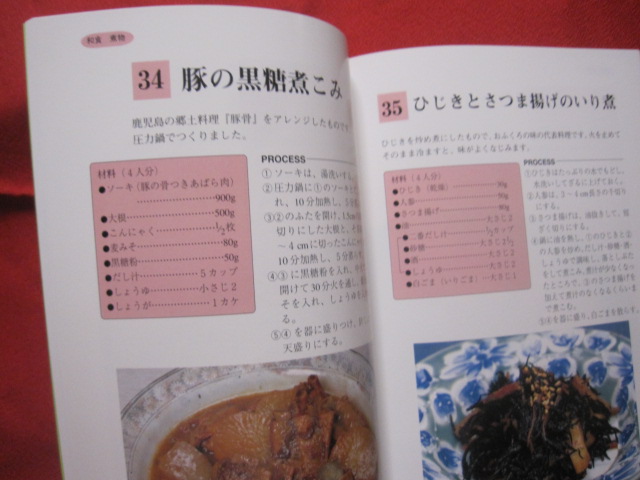 和食 煮物
34 豚の黒糖煮こみ
鹿児島の郷土料理『豚骨』をアレンジしたものです
圧力鍋でつくりました。
材料(4人分)
●ソーキ(豚の骨つきあばら肉)
900g
●大根 500g
●こんにゃく 1/2枚
●麦みそ 80g
●黒糖粉 50g
●だし汁 5カップ
●しょうゆ 小さじ2
●しょうが 1カケ
PROCESS
①ソーキは、湯洗いす
②圧力鍋に①のソーキ
れ、10分加熱し、5
③②のふたを開け、1.5cm
切りにした大根と、
~4cmに切ったこんにゃ
10分加熱し、5分
④③に黒糖粉を入れ、
開けて30分火を通し、
そを入れ、しょうゆ
る。
⑤④を器に盛りつけ、
天盛りにする。
35 ひじきとさつま揚げのいり煮
ひじきを炒め煮にしたもので、おふくろの味の代表料理です。火をとめて
そのまま冷ますと、味がよくなじみます。
材料(4人分)
●ひじき(乾燥) 30g
●人参 50g
●さつま揚げ 80g
●油 大さじ2
●二番だし汁 1/2カップ
●砂糖 大さじ2 1/2
●酒 大さじ2
●しょうゆ 大さじ2
●白ごま(いりごま) 大さじ1
PROCESS
①ひじきはたっぷりの水でもどし、
水洗いしてざるに上げておく。
②人参は、3~4cm長さの千切り
にする。
③さつま揚げは、油抜きして、短
ざく切りにする。
④鍋に油を熱し、①のひじきと②
の人参を炒め、だし汁・砂糖・酒・
しょうゆで調味し、落としぶた
をして煮こみ、煮汁が少なくなっ
たところで、③のさつま揚げを
加えて煮汁のなくなるくらいま
で煮こむ。
⑤④を器に盛り、白ごまを散らす。